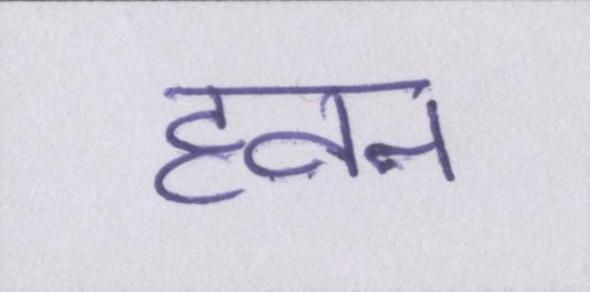 हवन